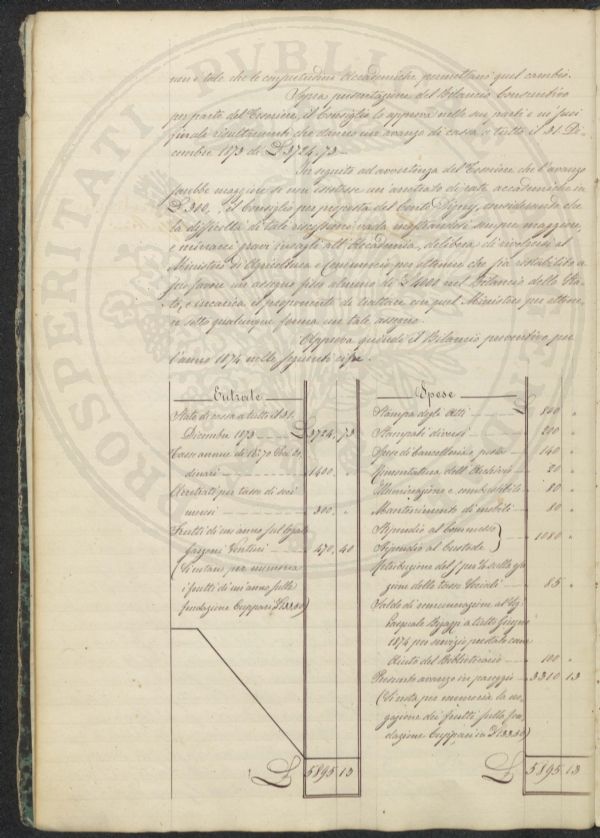 non è tale che le consuetudini Accademiche permettano quel cambio.
Sopra presentazione del Bilancio Consuntivo
per parte del Tesoriere, il Consiglio lo approva nelle sue parti e ne' suoi
finali risultamenti che danno un avanzo di cassa a tutto il 31 Di-
cembre 1873 di £ 3724.73
In seguito ad avvertenza del Tesoriere che l'avanzo
sarebbe maggiore se non esistesse un arretrato di rate accademiche in
£ 300, il Consiglio per proposta del Conte Digny, considerando che
la difficoltà di tale riscossione vada mostrandosi sempre maggiore,
e minacci gravi incagli all'Accademia, delibera di rivolgersi al
Ministero di Agricoltura e Commercio per ottenere che sia ristabilito a
suo favore un assegno fisso almeno di £ 4000 nel Bilancio dello Sta-
to, e incarica il proponente di trattare con quel Ministero per ottene-
re sotto qualunque forma un tale assegno.
Approva quindi il Bilancio preventivo per
l'anno 1874 nelle seguenti cifre.
Entrate
Stato di cassa a tutto il 31.
Dicembre 1873 £ 3724, 73
Tasse annue di N° 70 Soci Or-
dinari 1400, "
Arretrati per tasse di soci
morosi 300, "
Frutti di un anno sul legato
Gazzeri Venturi 470, 40
(Si notano per memoria
i frutti di un anno sulla
fondazione Cuppari
£ 5895 13
Spese
Stampa degli Atti £ 800 "
Stampati diversi 200 "
Spese di cancelleria e posta 140 "
Rimontatura dell'Archivio 20 "
Illuminazione e combustibile 80 "
Mantenimento di mobili 80 "
Stipendio al Commesso
Stipendio al Custode 1080 "
Retribuzione del 5 per % sulla esa-
zione delle tasse Sociali 85 "
Saldo di rimunerazione al Sig.
Pasquale Bigazzi a tutto Giugno
1874 per servizio prestato come
Aiuto del Bibliotecario 100 "
Presunto avanzo in pareggio 3310 13
(Si nota per memoria la ero-
gazione dei frutti sulla fon-
dazione Cuppari in
£ 5895 13
PROSPERITATI PUBLICAE